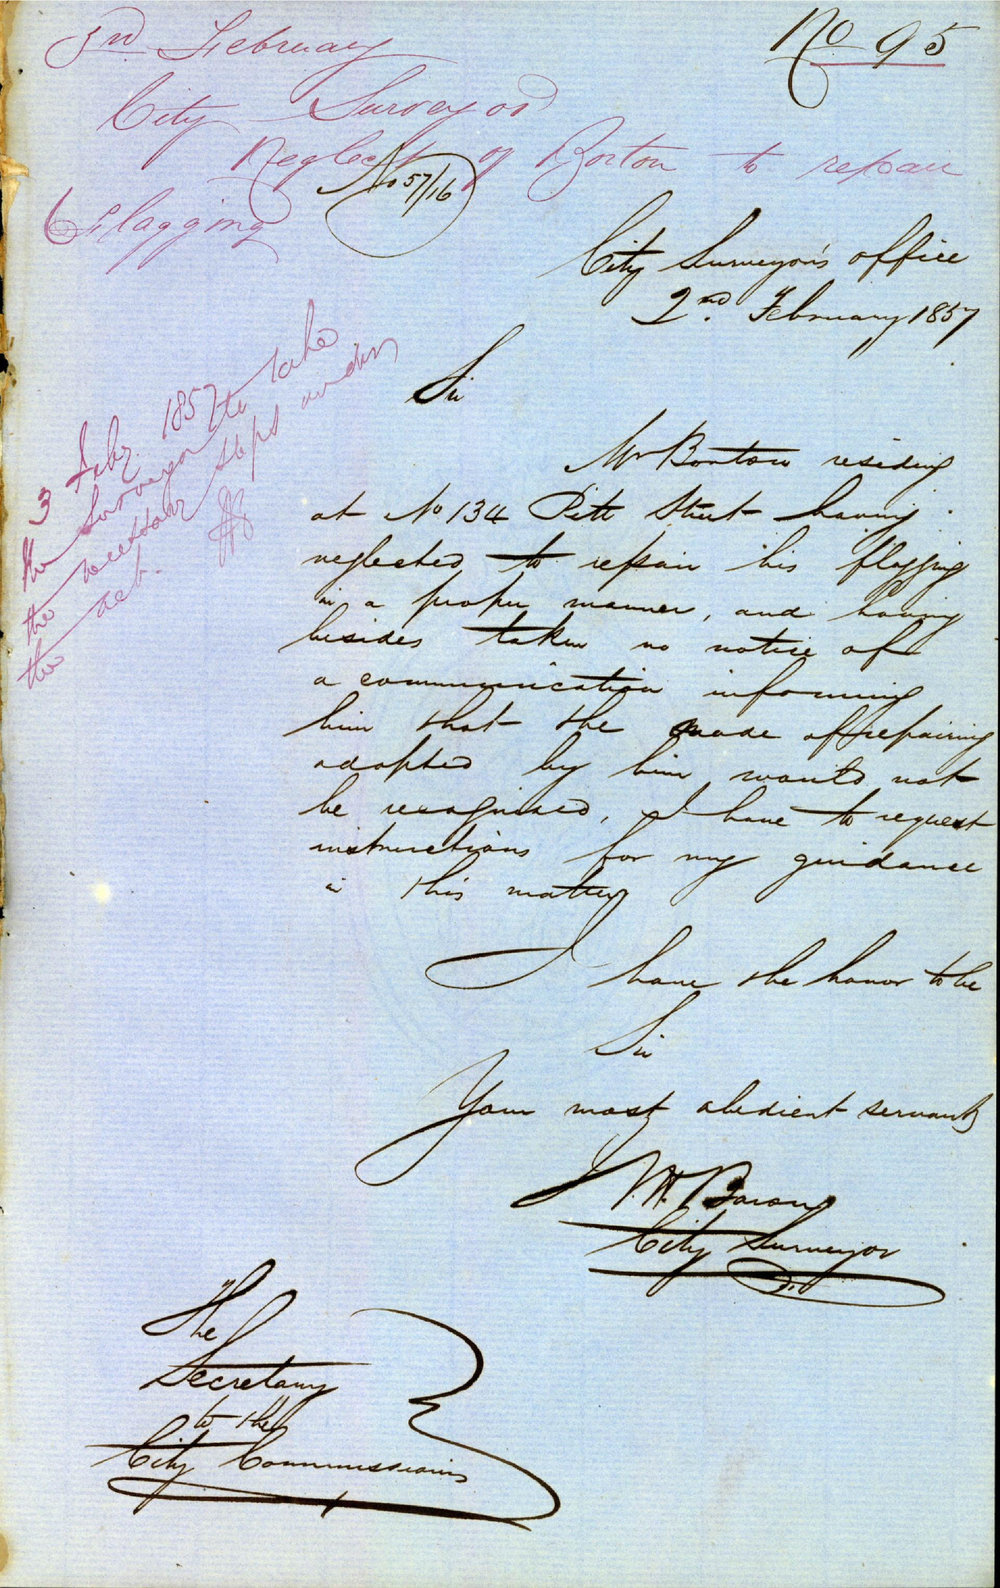 No 95
3rd February
City Surveyor
Neglect of Borton to repair
flagging
No 57/16
City Surveyor's office
2nd. February 1857
Sir
Mr Bortow residing
at No 134 Pitt Street having
neglected to repair his flagging
in a proper manner, and having
besides taken no notice of
a communication informing
him that the mode of repairing
adopted by him would not
be recognized, I have to request
instructions for my guidance
in this matter
I have the honor to be
Sir
Your most obedient servant
City Surveyor
3 Feby. 1857
the Surveyor to take
the necessary steps under
the act.
The
Secretary
to the
City Commissioners